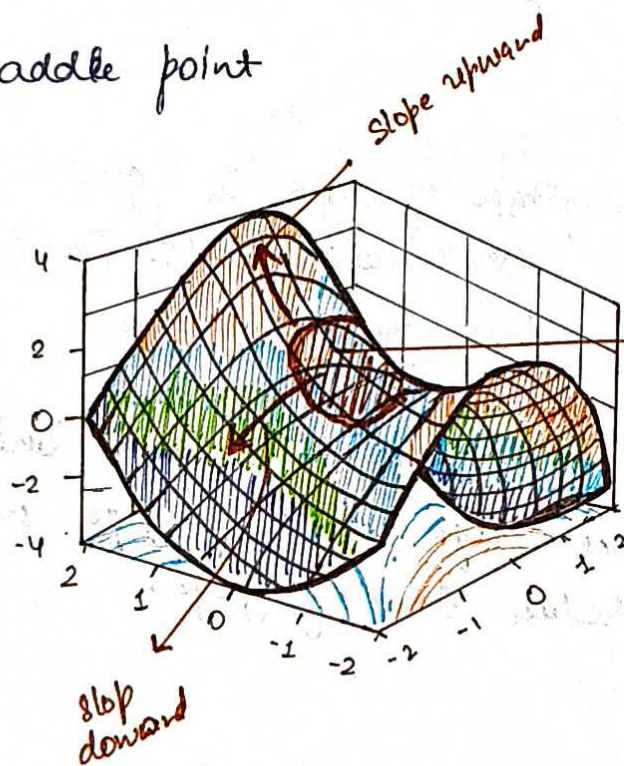 addle point
slope upward
4
2
0
-2
-4
2
1
0
-1
-2
-2
-1
0
1
2
slop
doward